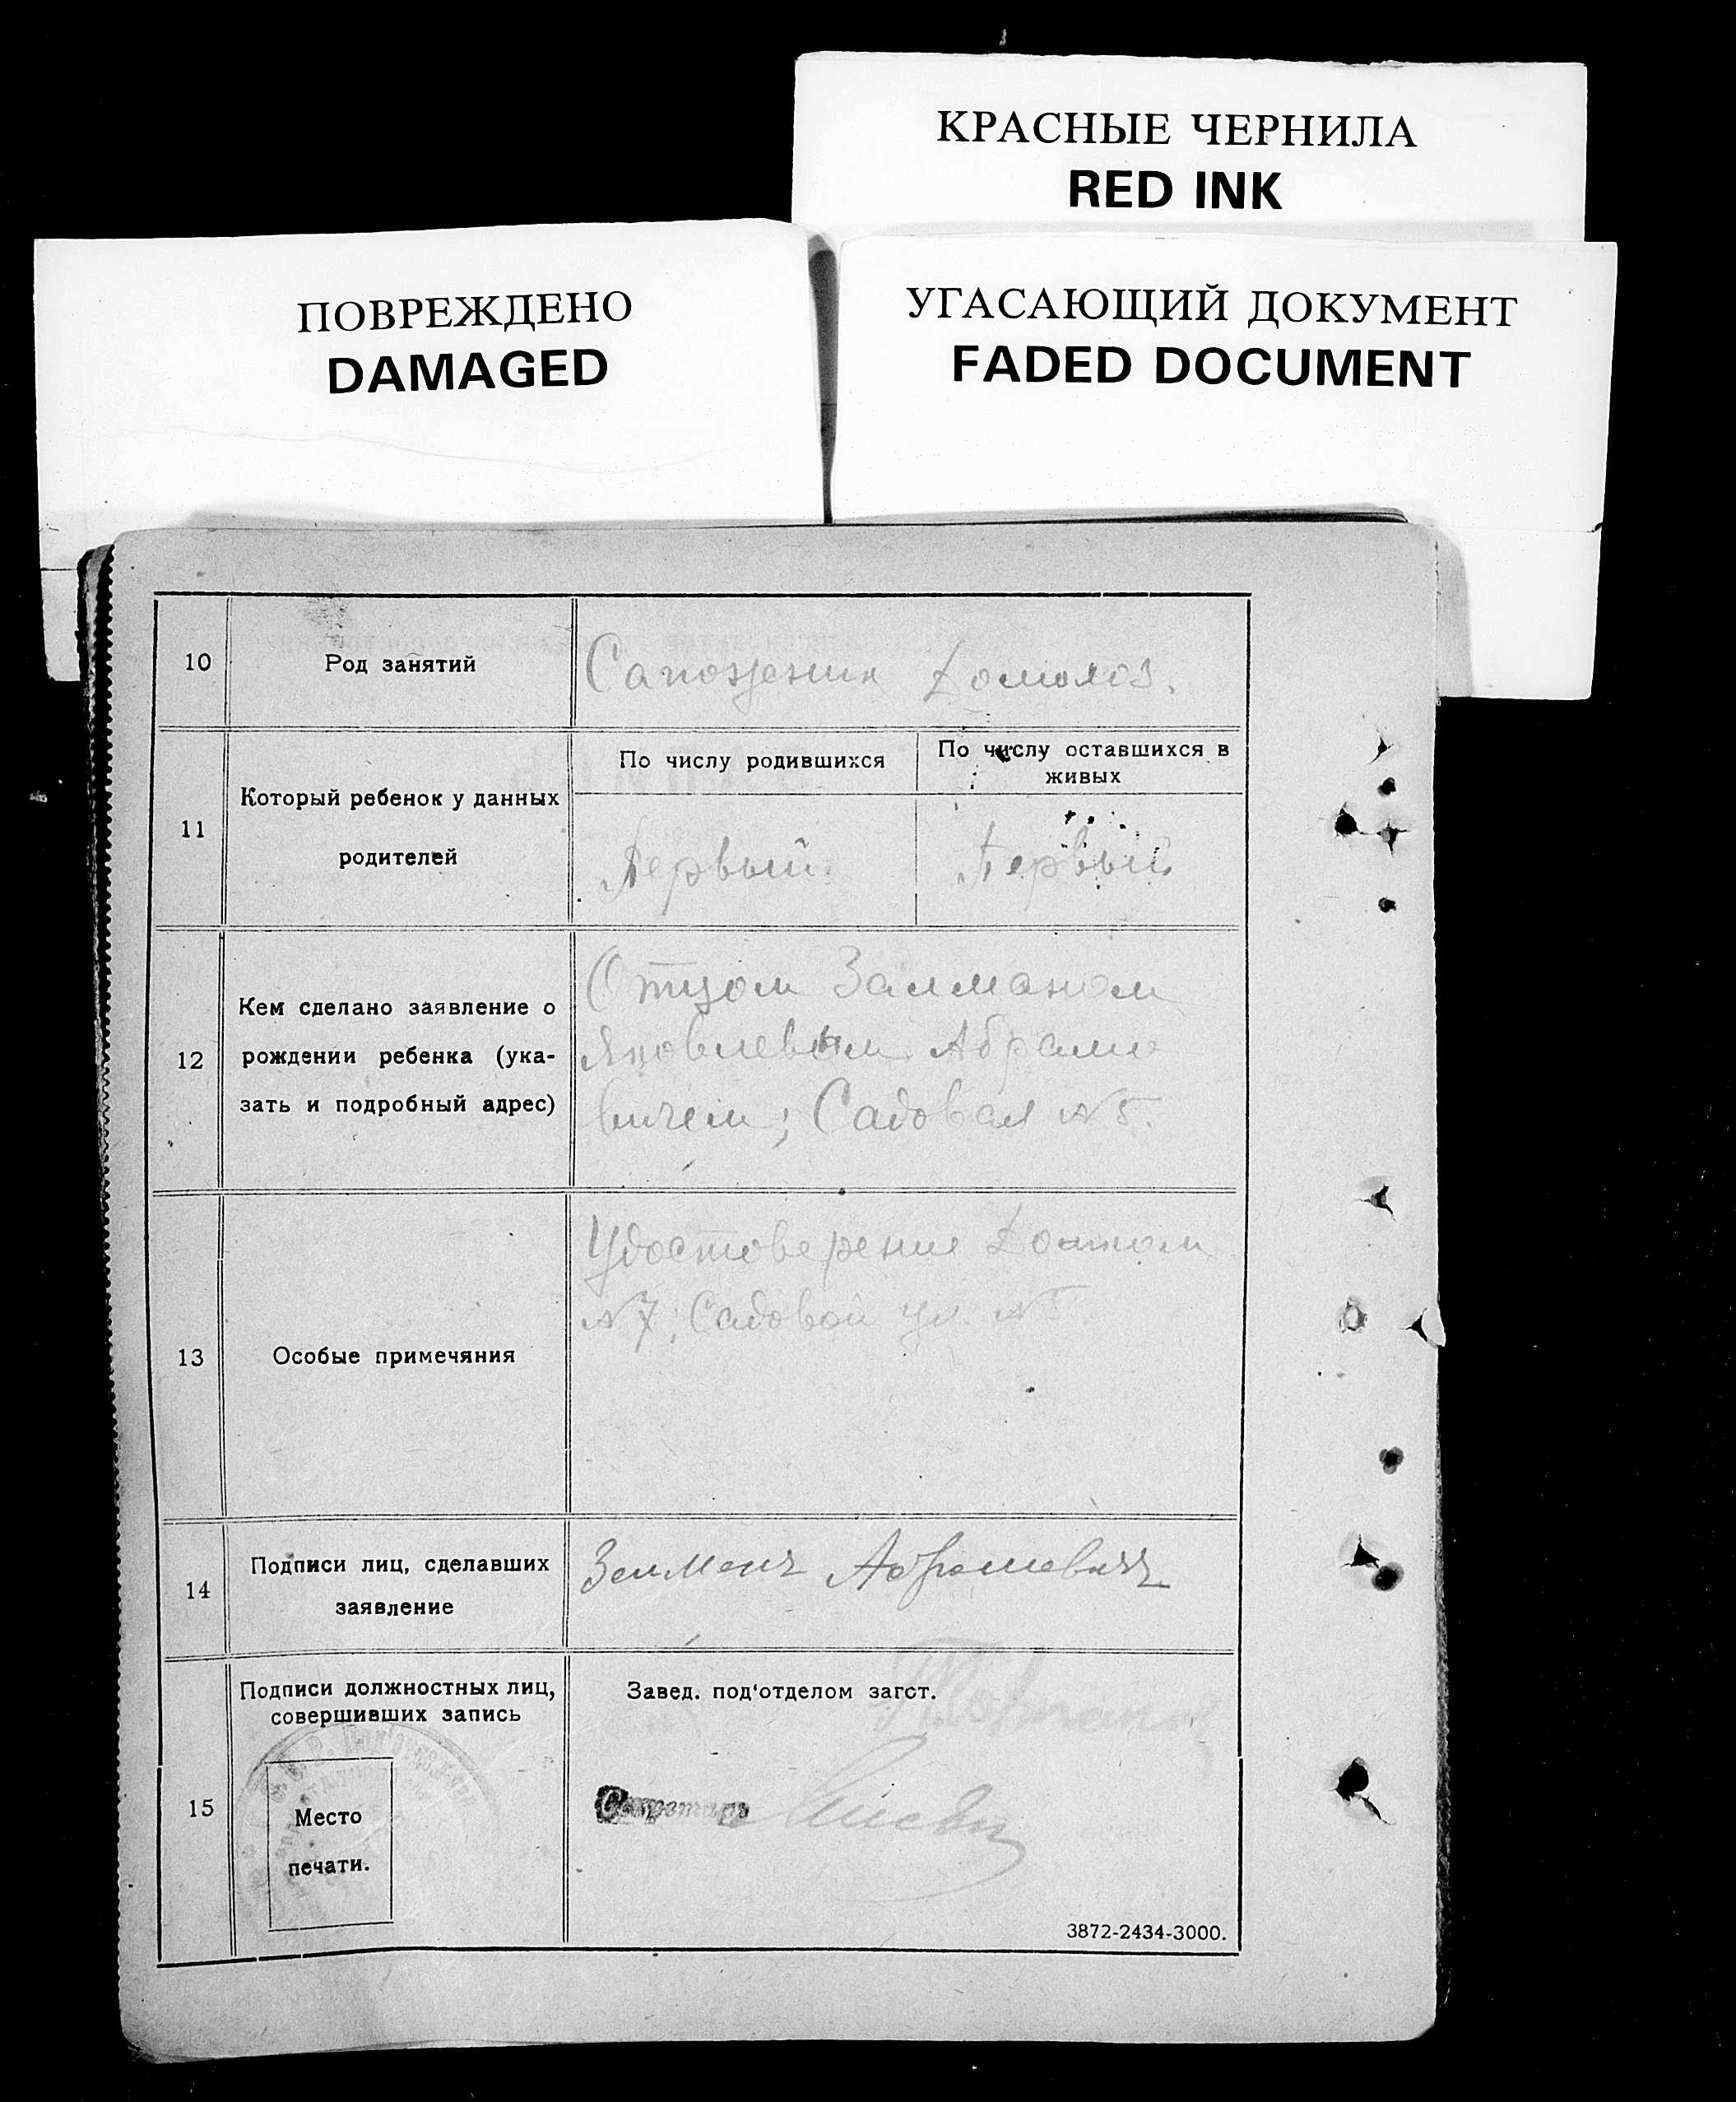 КРАСНЫЕ ЧЕРНИЛА
RED INK
ПОВРЕЖДЕНО
DAMAGED
УГАСАЮЩИЙ ДОКУМЕНТ
FADED DOCUMENT
10
Род занятий
Сапожник Домохоз.
11
Который ребенок у данных
родителей
По числу родившихся
По числу оставшихся в
живых
Первый
Первый
12
Кем сделано заявление о
рождении ребенка (ука-
зать и подробный адрес)
Отцом Залманом
Яковлевым Абрамо
вичем; Садовая № 5.
13
Особые примечяния
Удостоверение Домком
№ 7, Садовой ул. №
14
Подписи лиц, сделавших
заявление
Залман Абрамович
15
Подписи должностных лиц,
совершивших запись
Место
печати.
Завед. под'отделом загст.
Секретарь
3872-2434-3000.